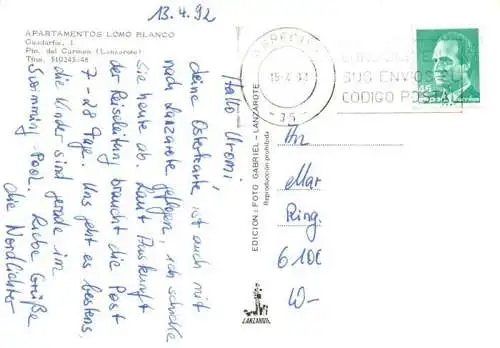 13.4.92
APARTAMENTOS LOMO BLANCO
Guardarfia, 1
Pto. del Carmen (Lanzarote)
Tfno. 510245/46
Hallo Uromi,
deine Osterkarte ist auch mit
nach Lanzarote geflogen, ich schicke
sie heute ab. Laut Auskunft
der Reiseleitung braucht die Post
7-28 Tage. Uns geht es bestens.
die Kinder sind gerade im
Swimming-Pool. Liebe Grüße
die Nordlichter
EDICION: FOTO GABRIEL - LANZAROTE
Reproducción prohibida
LANZAROTE
ARRECIFE
15-4 92
SUS ENVIOS EL
CODIGO POSTAL
45
Mar
Ring.
610
W-